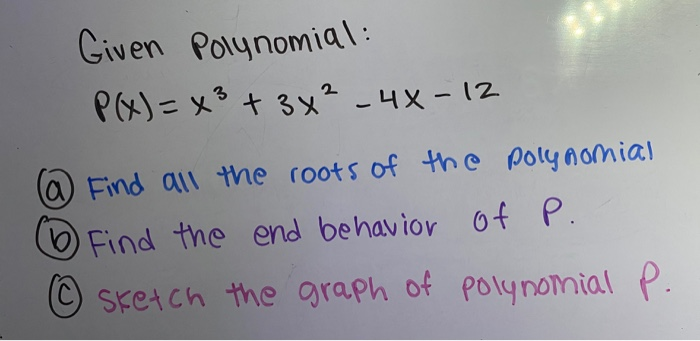 Given Polynomial:
P(x) = x³ + 3x² - 4x - 12
(a) Find all the roots of the polynomial
(b) Find the end behavior of P.
(c) Sketch the graph of polynomial P.